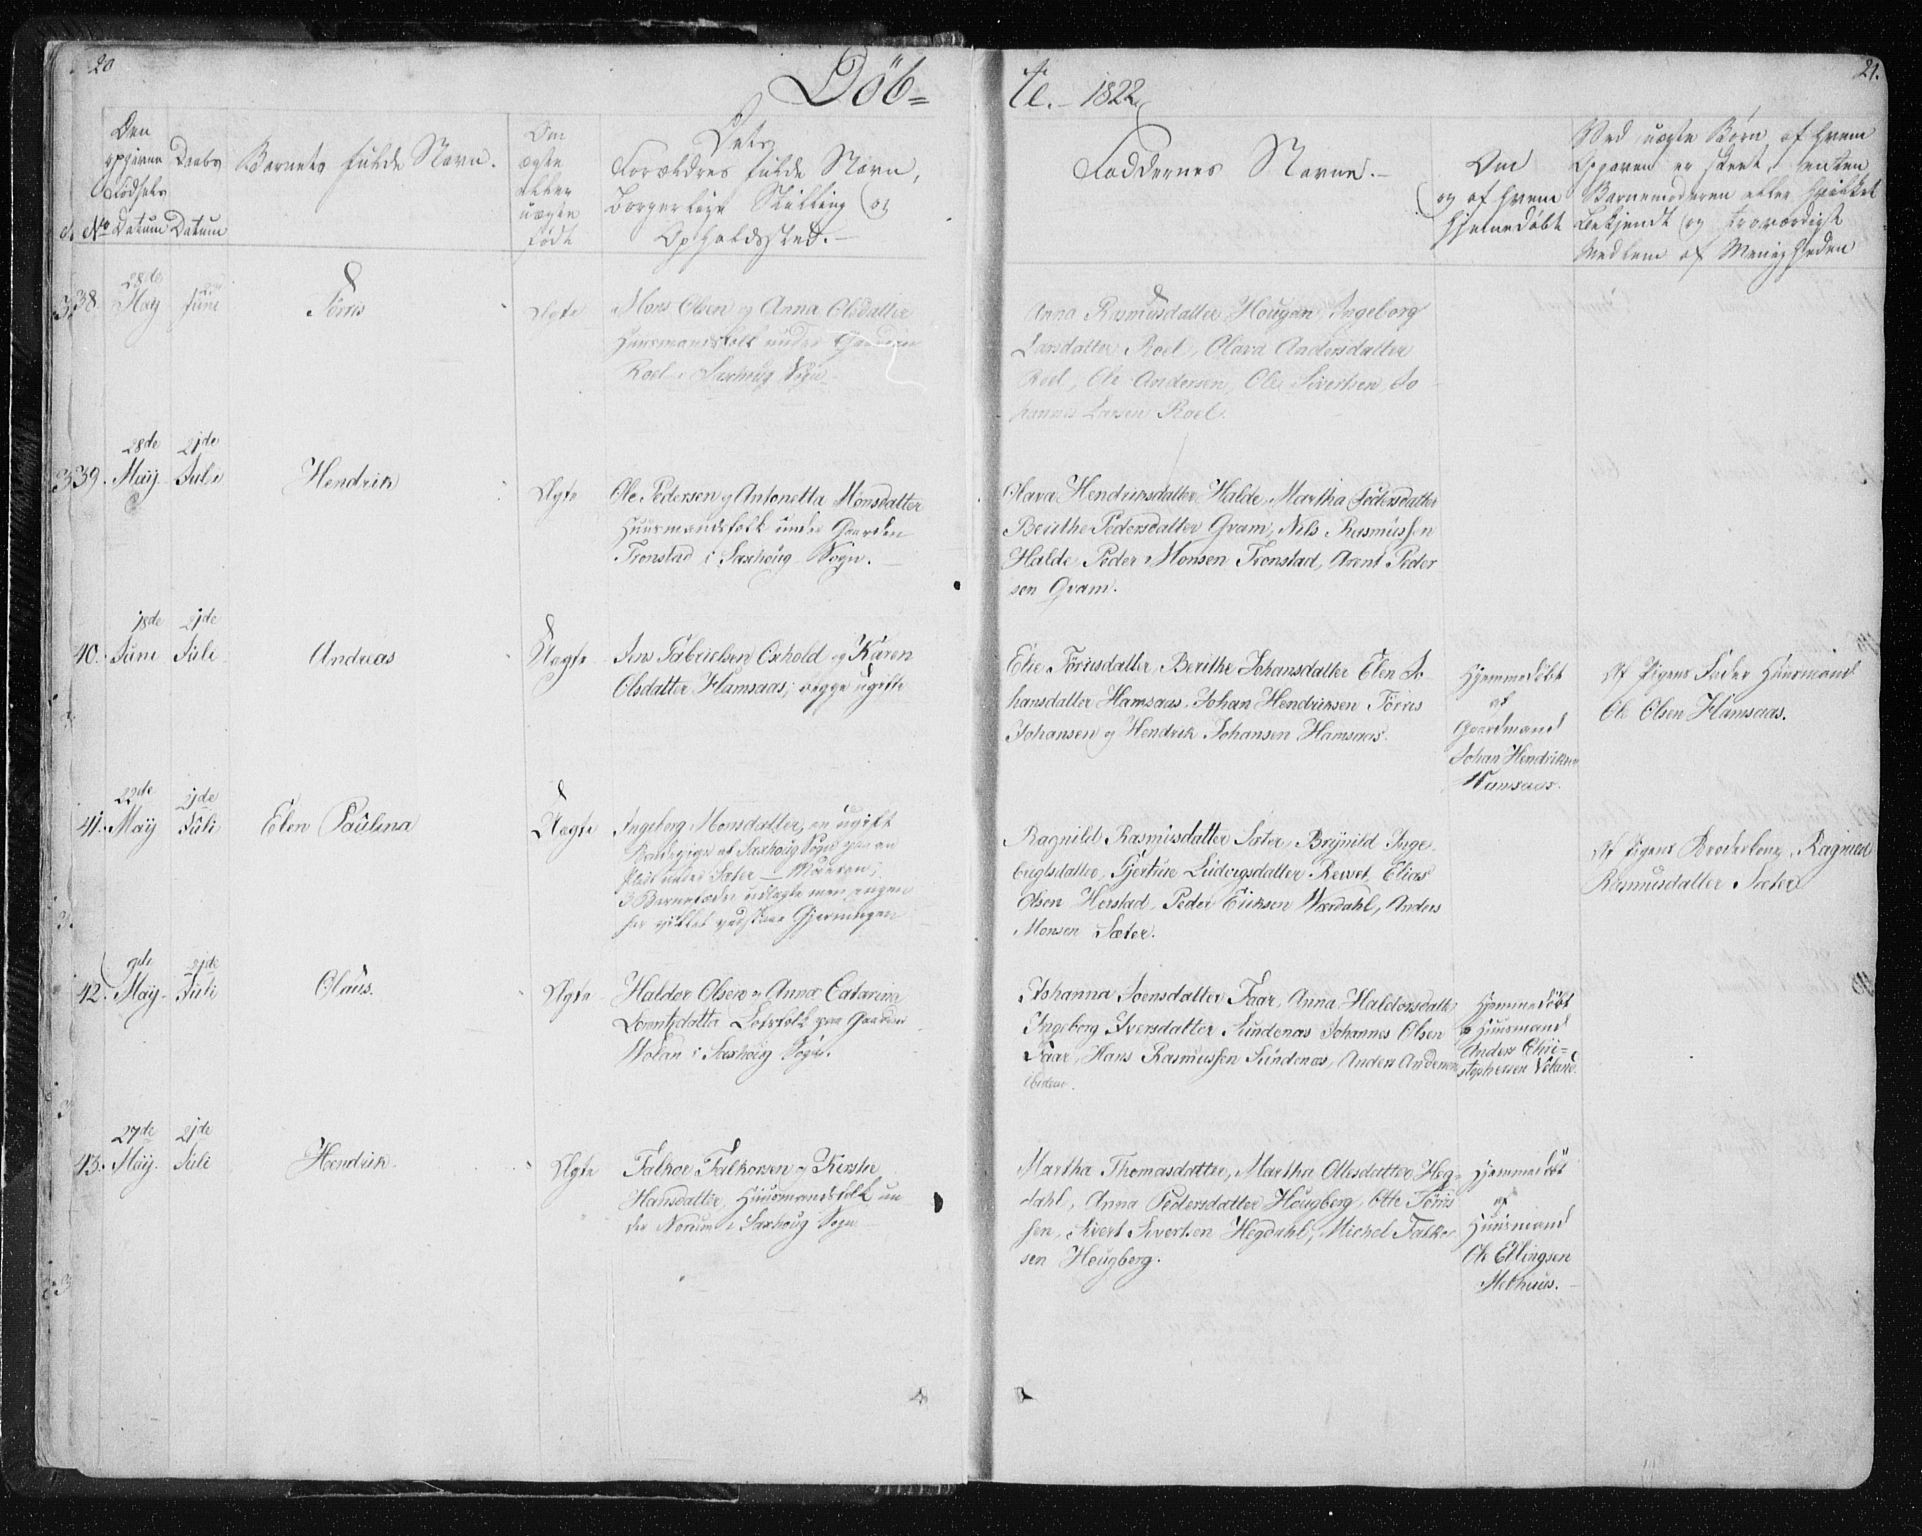 20
Döb=
te. - 1822
21.
Den
opgivne
Fødsels
No Datum
Daabs
Datum
Barnets fulde Navn.
Om
ægte
eller
uægte
født
Dets
Forældres fulde Navn,
Borgerlige Stilling og
Opholdssted.-
Faddernes Navne.-
Om
og af hvem
hjemedöbt
Ved uægte Børn, af hvem
Opgaven er skeet, enten
Barnemoderen eller hvilket
bekjendt og troværdigt
Medlem af Menigheden
38.
28de
May
Juni
Törris
Ægte
Mons Olsen og Anna Olsdatter
Huusmandsfolk under Gaarden
Roel i Saxhoug Sogn
Anna Rasmusdatter Hougan, Ingeborg
Larsdatter Roel, Olava Andersdatter
Roel, Ole Andersen, Ole Sivertsen, Jo
hannes Larsen Roel.
39.
28de
May
21de
Juli
Hendrik
Ægte
Ole Pedersen og Antonetta Monsdatter
Huusmandsfolk under Gaarden
Tronstad i Saxhoug Sogn.
Olava Hendriksdatter Halde, Martha Pedersdatter
Berithe Pedersdatter Gram, Nils Rasmussen
Halde, Peder Monsen Tronstad, Arent Peder
sen Gram.
40.
18de
Juni
21de
Juli
Andreas
Uægte
Jens Gabrielsen Oxhold og Karen
Olsdatter Hamsaas, begge ugifte
Elie Törrisdatter, Berithe Johansdatter Elen Jo
hansdatter Hamsaas, Johan Hendriksen Törris
Johansen og Hendrik Johansen Hamsaas.
Hjemmedöbt
af
Gaardmand
Johan Hendriksen
Hamsaas.
Af Pigens Fader Huusmand
Ole Olsen Hamsaas.
41.
22de
May
21de
Juli
Elen Paulina
Uægte
Ingeborg Monsdatter, en ugift
af Saxhoug Sogn paa en
Plads under Sæter
3 Barnefædre udlagte men ingen
har villet vedstaae Gjerningen
Ragnild Rasmusdatter Sæter, Brynild Inge
brigtsdatter, Gjertrue Ludvigsdatter Elias
Olsen Herstad, Peder Eriksen Wærdahl, Anders
Monsen Sæter.
Af Pigens Ragnild
Rasmusdatter Sæter
42.
9de
May
21de
Juli
Olaus.
Ægte
Haldor Olsen og Anna Catarina
Lorentzdatter paa Gaarden
Wolan i Saxhoug Sogn.
Johanna Joensdatter Faar, Anna Haldorsdatter
Ingeborg Iversdatter Sundenas Johannes Olsen
Faar, Hans Rasmussen Sundenas, Anders Andersen
ibidem.
Hjemmedöbt
Huusmand
Anders Chri=
stophersen Voland.
43.
27de
May.
21de
Juli
Hendrik
Ægte
Falkor Falkorsen og Kerstie
Hansdatter, Huusmandsfolk un
der Norum i Saxhoug Sogn
Martha Thomasdatter, Martha Ottesdatter Heg=
dahl, Anna Pedersdatter Hougberg, Otte Törris
sen, Sivert Sivertsen Hegdahl, Michel Falkor
sen Hougberg.
Hjemmedöbt
af
Huusmand
Ole Ellingsen
Melhuus.